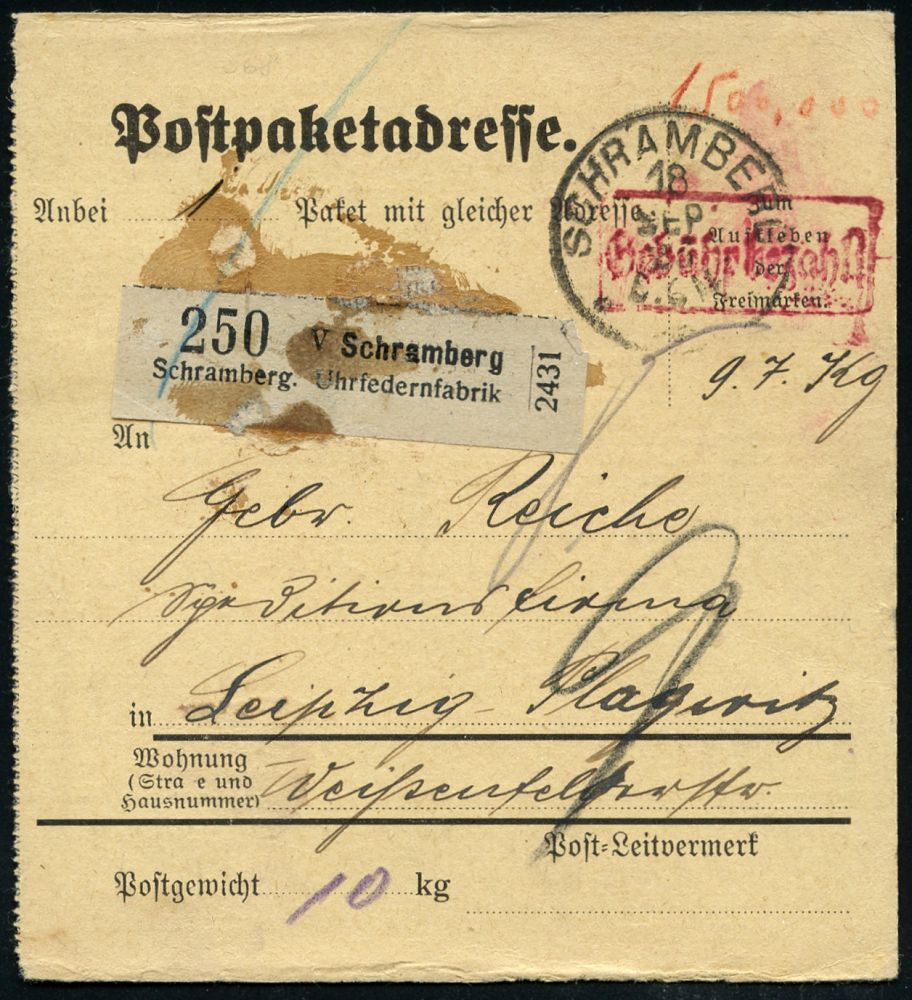 1,500,000
Postpaketadresse.
SCHRAMBERG
18
SEP
Anbei 1 Paket mit gleicher Adresse
Zum
Aufkleben
der
Freimarken.
Gebühr bezahlt
250 V Schramberg
Schramberg. Uhrfedernfabrik
2431
9.7. Kg
An
Gebr. Reiche
Speditionsfirma
in Leipzig-Plagwitz
Wohnung
(Stra e und
Hausnummer) Weißenfelserstr.
Post-Leitvermerk
9
Postgewicht 10 kg